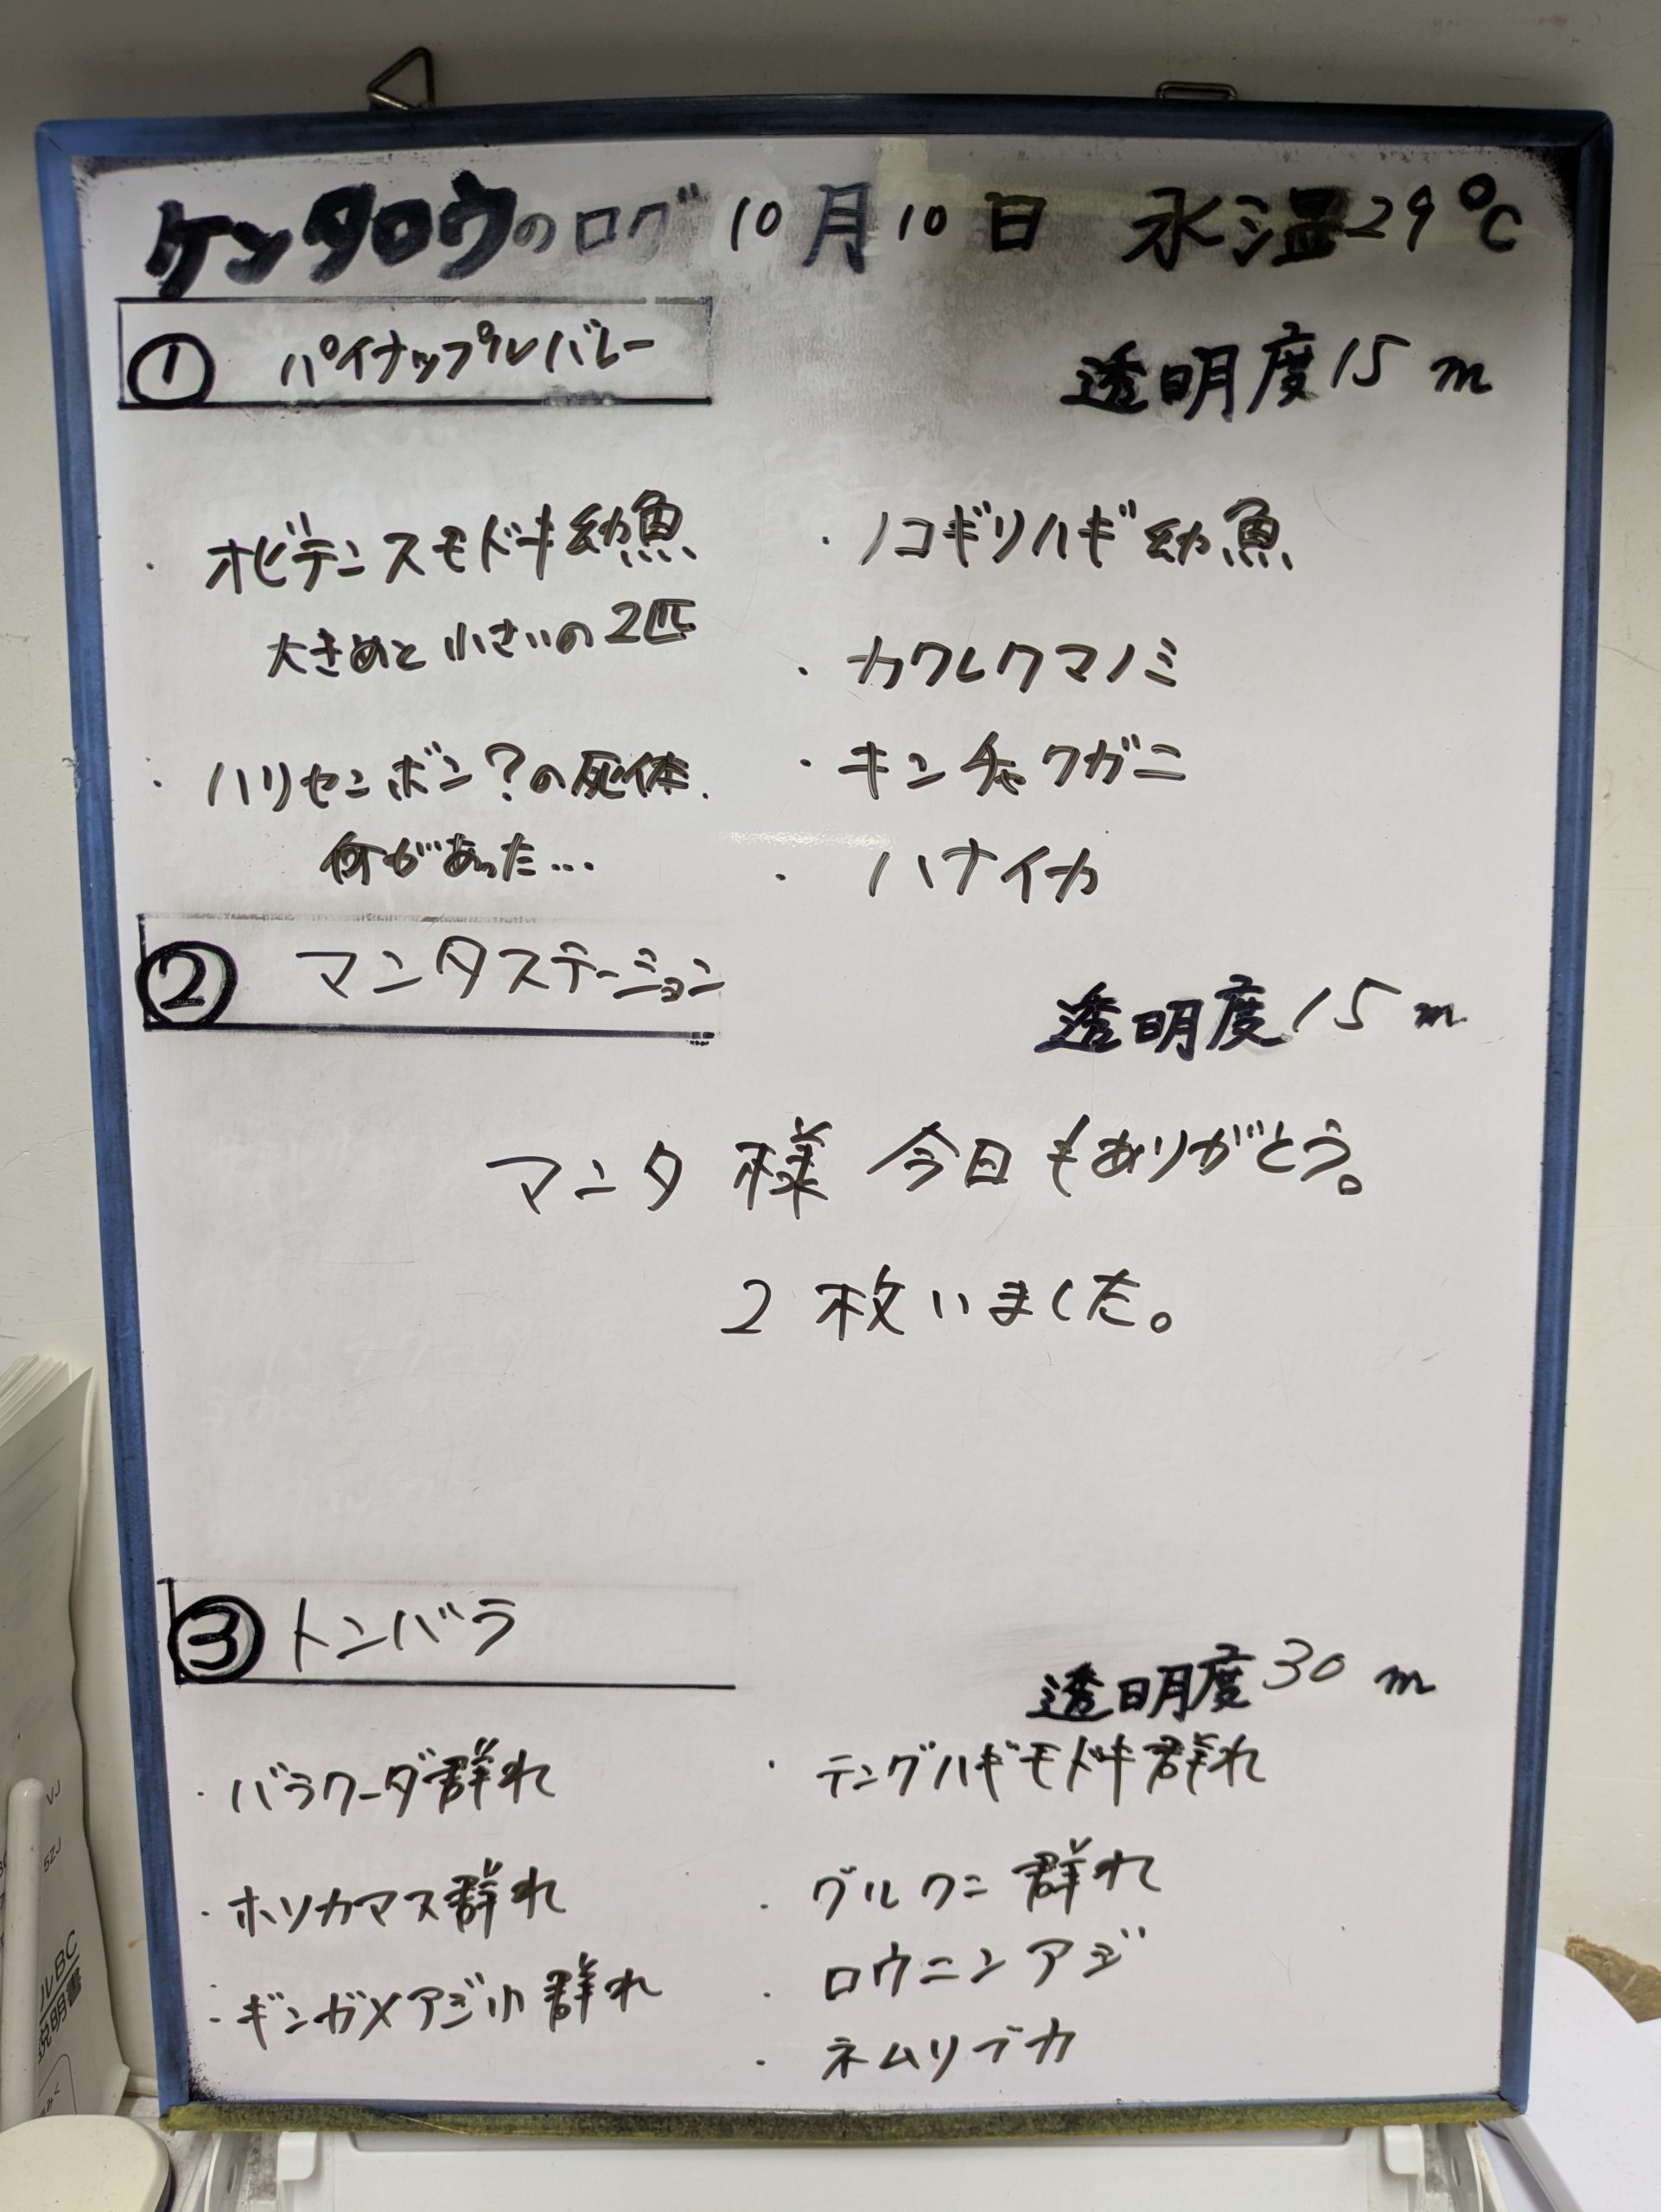 ケンタロウのログ 10月10日 水温29℃
① パイナップルバレー
透明度15m
・オビテンスモドキ幼魚
大きめと小さいの2匹
・ハリセンボン?の死体.
何があった…
・ノコギリハギ幼魚
・カクレクマノミ
・キンチャクガニ
・ハナイカ
② マンタステーション
透明度15m
マンタ様 今日もありがとう。
2枚いました。
③ トンバラ
透明度30m
・バラクーダ群れ
・ホソカマス群れ
・ギンガメアジ小群れ
・テングハギモドキ群れ
・グルクン群れ
・ロウニンアジ
・ネムリブカ
ルBC
説明書